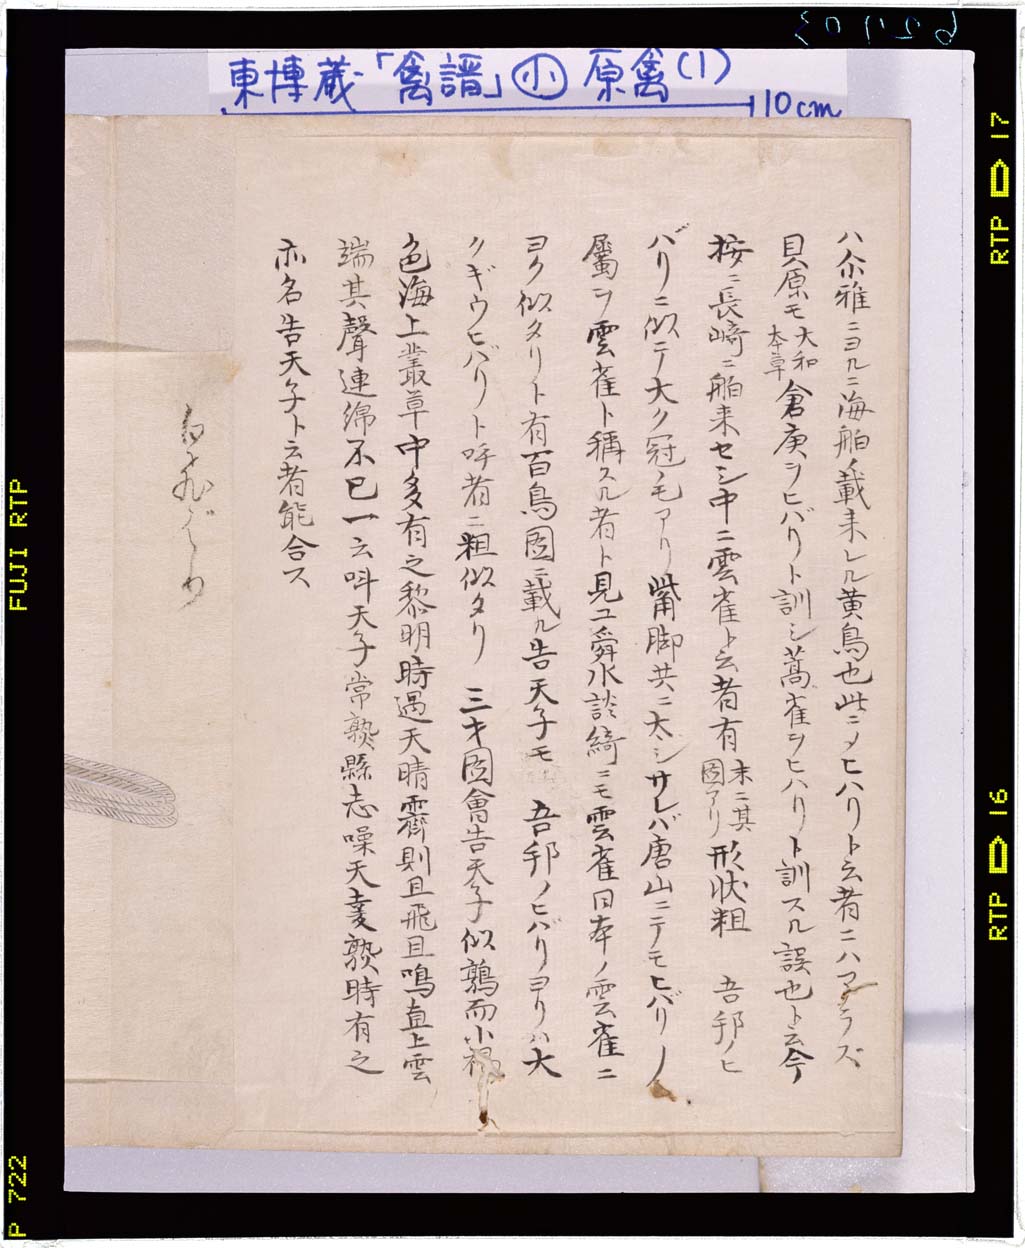 東博蔵「禽譜」㊥ 原禽(1)
10cm
ハ尓雅ニヨルニ海舶ノ載来レル黄鳥也此ニメヒハリト云者ニハアラズ
貝原モ大和本草倉庚ヲヒバリト訓シ蒿雀ヲヒハリト訓スル誤也ト云今
按ニ長崎ニ舶来セシ中ニ雲雀ト云者有末ニ其図アリ形状粗 吾邦ノヒ
バリニ似テ大ク冠ノ毛アリ觜脚共ニ太シサレバ唐山ニテモヒバリノ
屬ヲ雲雀ト稱スル者ト見ユ舜水談綺ニモ雲雀日本ノ雲雀ニ
ヨク似タリト有百鳥図ニ載ル告天子モ 吾邦ノヒバリヨリハ大
クギウヒバリト呼者ニ粗似タリ 三才図會告天子似鶉而小褐
色海上叢草中多有之黎明時遇天晴霽則且飛且鳴直上雲
端其聲連綿不已一云呌天子常熟縣志噪天麦熟時有之
亦名告天子ト云者能合ス